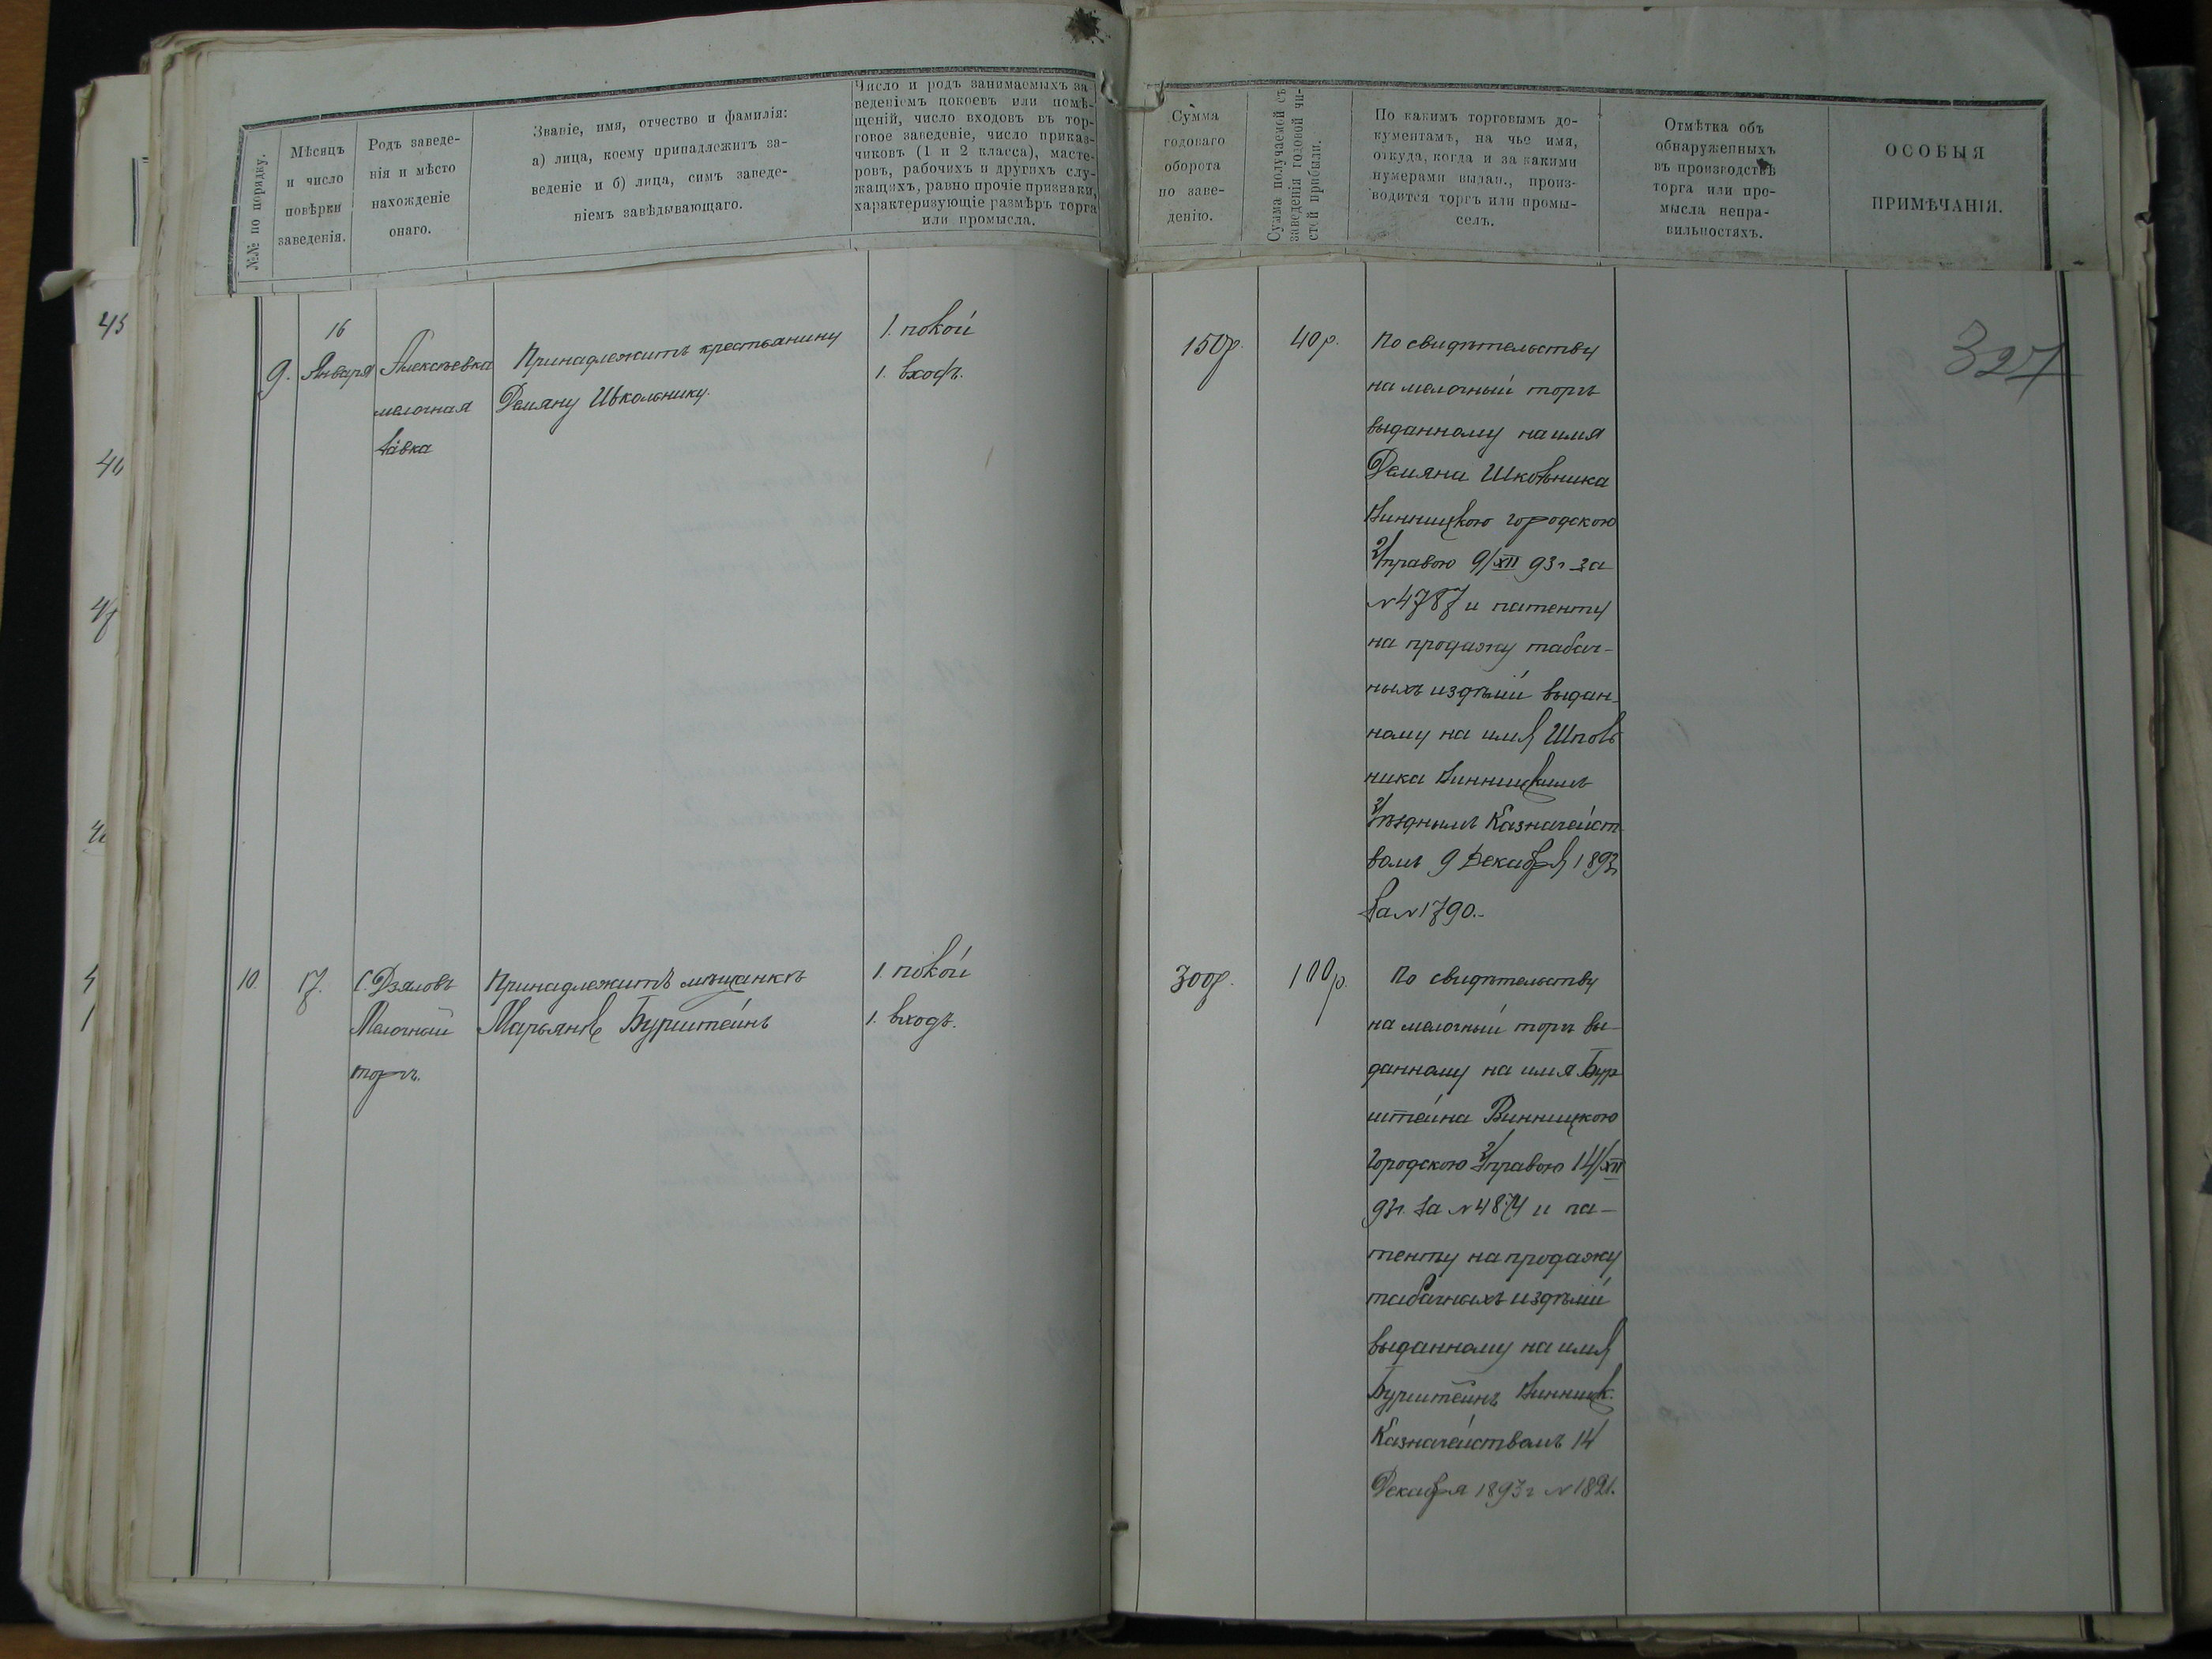 №№ по порядку.
Мѣсяцъ
и число
повѣрки
заведенія.
Родъ заведе-
нія и мѣсто
нахожденіе
онаго.
Званіе, имя, отчество и фамилія:
а) лица, коему принадлежитъ за-
веденіе и б) лица, симъ заведе-
ніемъ завѣдывающаго.
Число и родъ занимаемыхъ за-
веденіемъ покоевъ или помѣ-
щеній, число входовъ въ тор-
говое заведеніе, число приказ-
чиковъ (1 и 2 класса), масте-
ровъ, рабочихъ и другихъ слу-
жащихъ, равно прочіе признаки,
характеризующіе размѣръ торга
или промысла.
Сумма
годоваго
оборота
по заве-
денію.
Сумма получаемой съ
заведенія годовой чи-
стой прибыли.
По какимъ торговымъ до-
кументамъ, на чье имя,
откуда, когда и за какими
нумерами выдан., произ-
водится торгъ или промы-
селъ.
Отмѣтка объ
обнаруженныхъ
въ производствѣ
торга или про-
мысла непра-
вильностяхъ.
ОСОБЫЯ
ПРИМѢЧАНІЯ.
327
9.
16
Января
Алексѣевка
мелочная
лавка
Принадлежитъ крестьянину
Демяну Школьнику.
1. покой
1. входъ.
150р.
40р.
По свидѣтельству
на мелочный торгъ
выданному на имя
Демяна Школьника
Винницкою городскою
Управою 9/XII 93г за
№4787 и патенту
на продажу табач-
ныхъ издѣлій выдан-
ному на имя Школь
ника Винницкимъ
Уѣзднымъ Казначейст-
вомъ 9 Декабря 1893
за №1790.-
10.
17.
С. Дзяловъ
Мелочный
торгъ.
Принадлежитъ мѣщанкѣ
Марьянѣ Бурштейнъ
1. покой
1. входъ.
300р.
100р.
По свидѣтельству
на мелочный торгъ вы-
данному на имя Бур
штейна Винницкою
Городскою Управою 14/XII
93г. за №4874 и па-
тенту на продажу
табачныхъ издѣлій
выданному на имя
Бурштейнъ Винницк.
Казначействомъ 14
Декабря 1893г №1821.